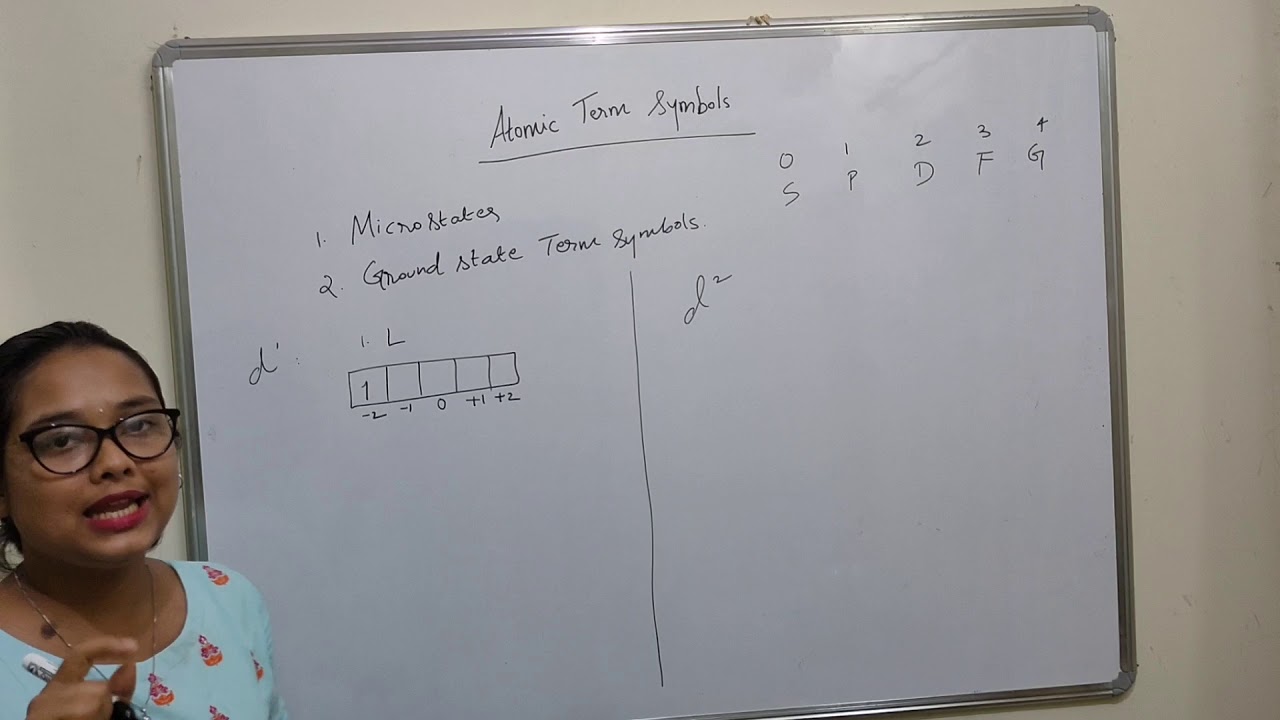 Atomic Term Symbols
0 1 2 3 4
S P D F G
1. Microstates
2. Ground state Term symbols.
d¹ : 1. L
1
-2 -1 0 +1 +2
d²